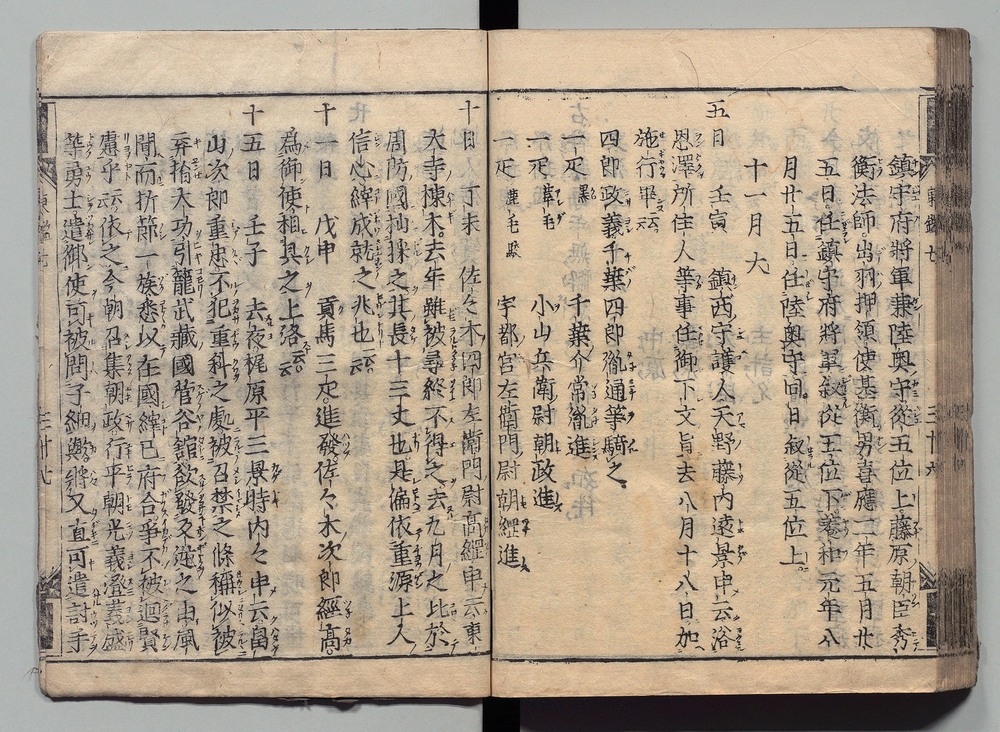 鎮守府將軍兼陸奥守從五位上藤原朝臣秀
衡法師出羽押領使基衡男嘉應二年五月廿
五日任鎮守府將軍叙從五位下養和元年八
月廿五日任陸奥守同日叙從五位上
十一月大
五日 壬寅 鎮西守護人天野藤内遠景申云浴
恩澤所住人等事任御下文旨去八月十八日加
施行畢云云
四郎政義千葉四郎胤通等騎之
一疋黒 千葉介常胤進
一疋葦毛 小山兵衛尉朝政進
一疋鹿毛駮 宇都宮左衛門尉朝綱進
十日 丁未 佐々木四郎左衛門尉高綱申云東
大寺棟木去年雖被尋終不得之去九月之比於
周防國杣採之其長十三丈也是偏依重源上人
信心緯成就之兆也云云
十一日 戊申 貢馬三疋進發佐々木次郎經高
為御使相具之上洛云云
十五日 壬子 去夜梶原平三景時内々申云畠
山次郎重忠不犯重科之處被召禁之條稱似被
弃捐大功引籠武藏國菅谷舘欲發反逆之由風
聞而折節一族悉以在國緯已府合爭不被廻賢
慮乎云云依之今朝召集朝政行平朝光義澄義盛
等勇士遣御使可被問子細歟將又直可遣討手
東鑑七
三十六
東鑑七
三十七